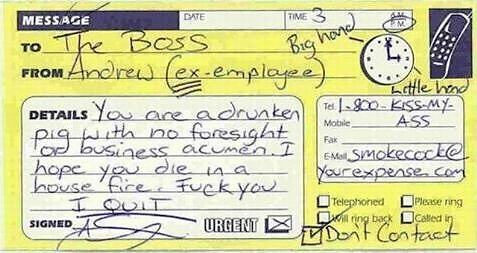 MESSAGE DATE TIME 3 A.M. P.M.
TO The Boss Big hand
FROM Andrew (ex-employee) Little hand
DETAILS You are a drunken
pig with no foresight
or business acumen. I
hope you die in a
house fire. Fuck you
I QUIT
SIGNED
URGENT
Tel. 1-800-KISS-MY-
ASS
Mobile
Fax
E-Mail smokecock@
yourexpense.com
Telephoned Please ring
Will ring back Called in
Don't Contact